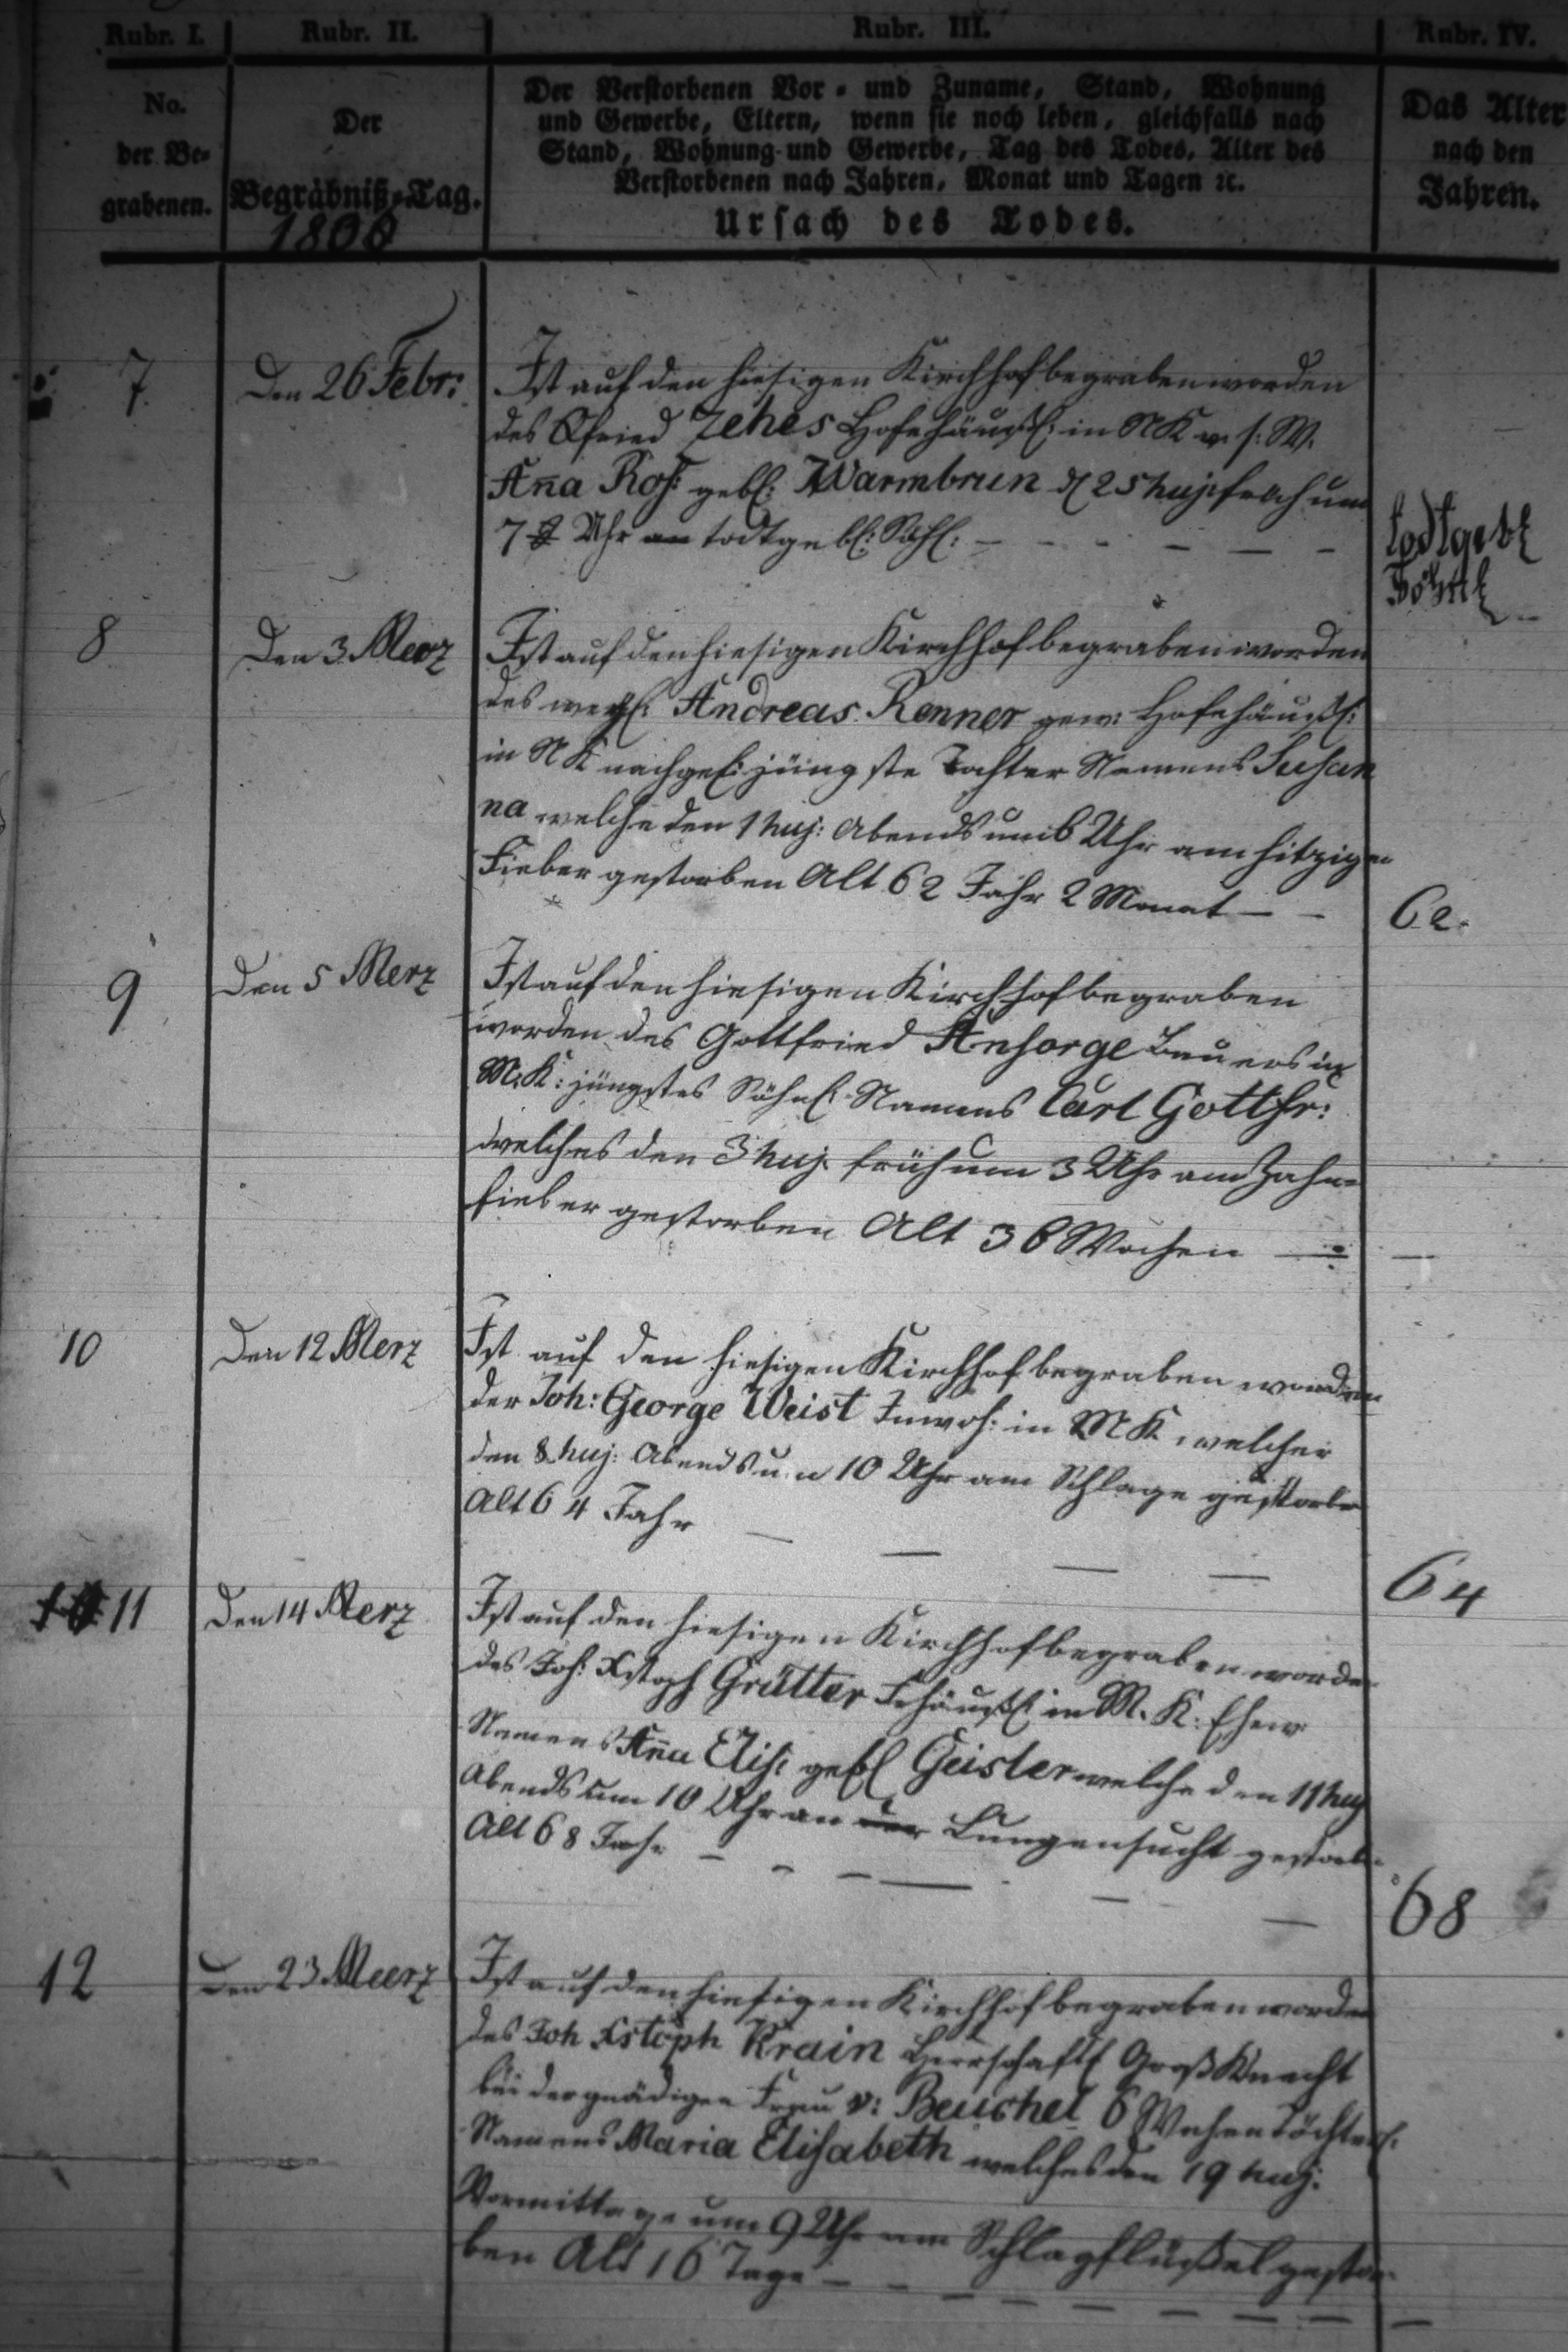 Rubr. I. Rubr. II. Rubr. III. Rubr. IV.
No.
der Be-
grabenen.
Der
Begräbniß-Tag.
1806
Der Verstorbenen Vor- und Zuname, Stand, Wohnung
und Gewerbe, Eltern, wenn sie noch leben, gleichfalls nach
Stand, Wohnung und Gewerbe, Tag des Todes, Alter des
Verstorbenen nach Jahren, Monat und Tagen ꝛc.
Ursach des Todes.
Das Alter
nach den
Jahren.
7. Den 26 Febr: Ist auf den hiesigen Kirchhof begraben worden
des Gfried Zehes Hofehäußl: in NK v. s: W.
Aña Ros: gebl: Warmbrun d 25 huj: früh um
7 Uhr todtgebl: Söhl: – – – – – –
todtgebl
Söhnl
8 Den 3 Merz Ist auf den hiesigen Kirchhof begraben worden
des weyl: Andreas Renner gew: Hofehäußl:
in NK nachgel: jüngste Tochter Namens Susan
na welche den 1 huj: Abends um 6 Uhr am hitzigen
Fieber gestorben Alt 62 Jahr 2 Monat – – 62.
9 Den 5 Merz Ist auf den hiesigen Kirchhof begraben
worden des Gottfried Ansorge Bauers in
M.K: jüngstes Söhnl: Namens Carl Gottfr:
welches den 3 huj. früh um 3 Uhr am Zahn-
fieber gestorben Alt 36 Wochen — —
10 Den 12 Merz Ist auf den hiesigen Kirchhof begraben worden
der Joh: George Weist Inwoh: in MK welcher
den 8 huj: Abends um 10 Uhr am Schlage gestorben
Alt 64 Jahr — — — — 64
11 Den 14 Merz Ist auf den hiesigen Kirchhof begraben worden
des Joh: Xstoph Grütter Frhäußl: in M. K: Ehew
Namens Aña Elis: gebl Geisler welche den 11 huj
Abends um 10 Uhr an der Lungensucht gestorb
Alt 68 Jahr – – – — – — 68
12 Den 23 Meerz Ist auf den hiesigen Kirchhof begraben worden
des Joh Xstoph Krain Herrschaftl Groß Knecht
bei der gnädigen Frau v: Beuchel 6 Wochen Töchterl:
Namens Maria Elisabeth welches den 19 huj:
Vormittage um 9 Uhr am Schlagflüßel gestor-
ben Alt 16 Tage – – – – – – – – –